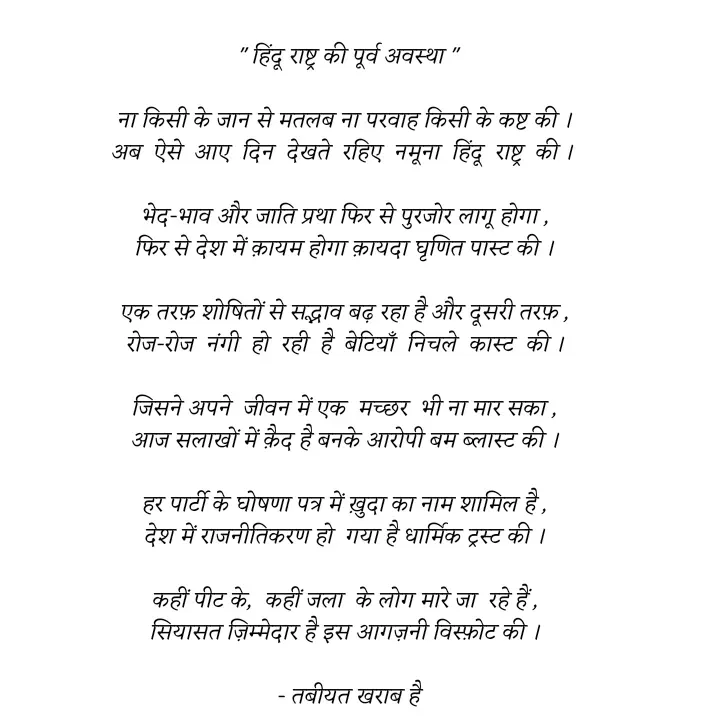 " हिंदू राष्ट्र की पूर्व अवस्था "
ना किसी के जान से मतलब ना परवाह किसी के कष्ट की ।
अब ऐसे आए दिन देखते रहिए नमूना हिंदू राष्ट्र की ।
भेद-भाव और जाति प्रथा फिर से पुरजोर लागू होगा ,
फिर से देश में क़ायम होगा क़ायदा घृणित पास्ट की ।
एक तरफ़ शोषितों से सद्भाव बढ़ रहा है और दूसरी तरफ़ ,
रोज-रोज नंगी हो रही है बेटियाँ निचले कास्ट की ।
जिसने अपने जीवन में एक मच्छर भी ना मार सका ,
आज सलाखों में क़ैद है बनके आरोपी बम ब्लास्ट की ।
हर पार्टी के घोषणा पत्र में ख़ुदा का नाम शामिल है ,
देश में राजनीतिकरण हो गया है धार्मिक ट्रस्ट की ।
कहीं पीट के, कहीं जला के लोग मारे जा रहे हैं ,
सियासत ज़िम्मेदार है इस आगज़नी विस्फ़ोट की ।
- तबीयत खराब है